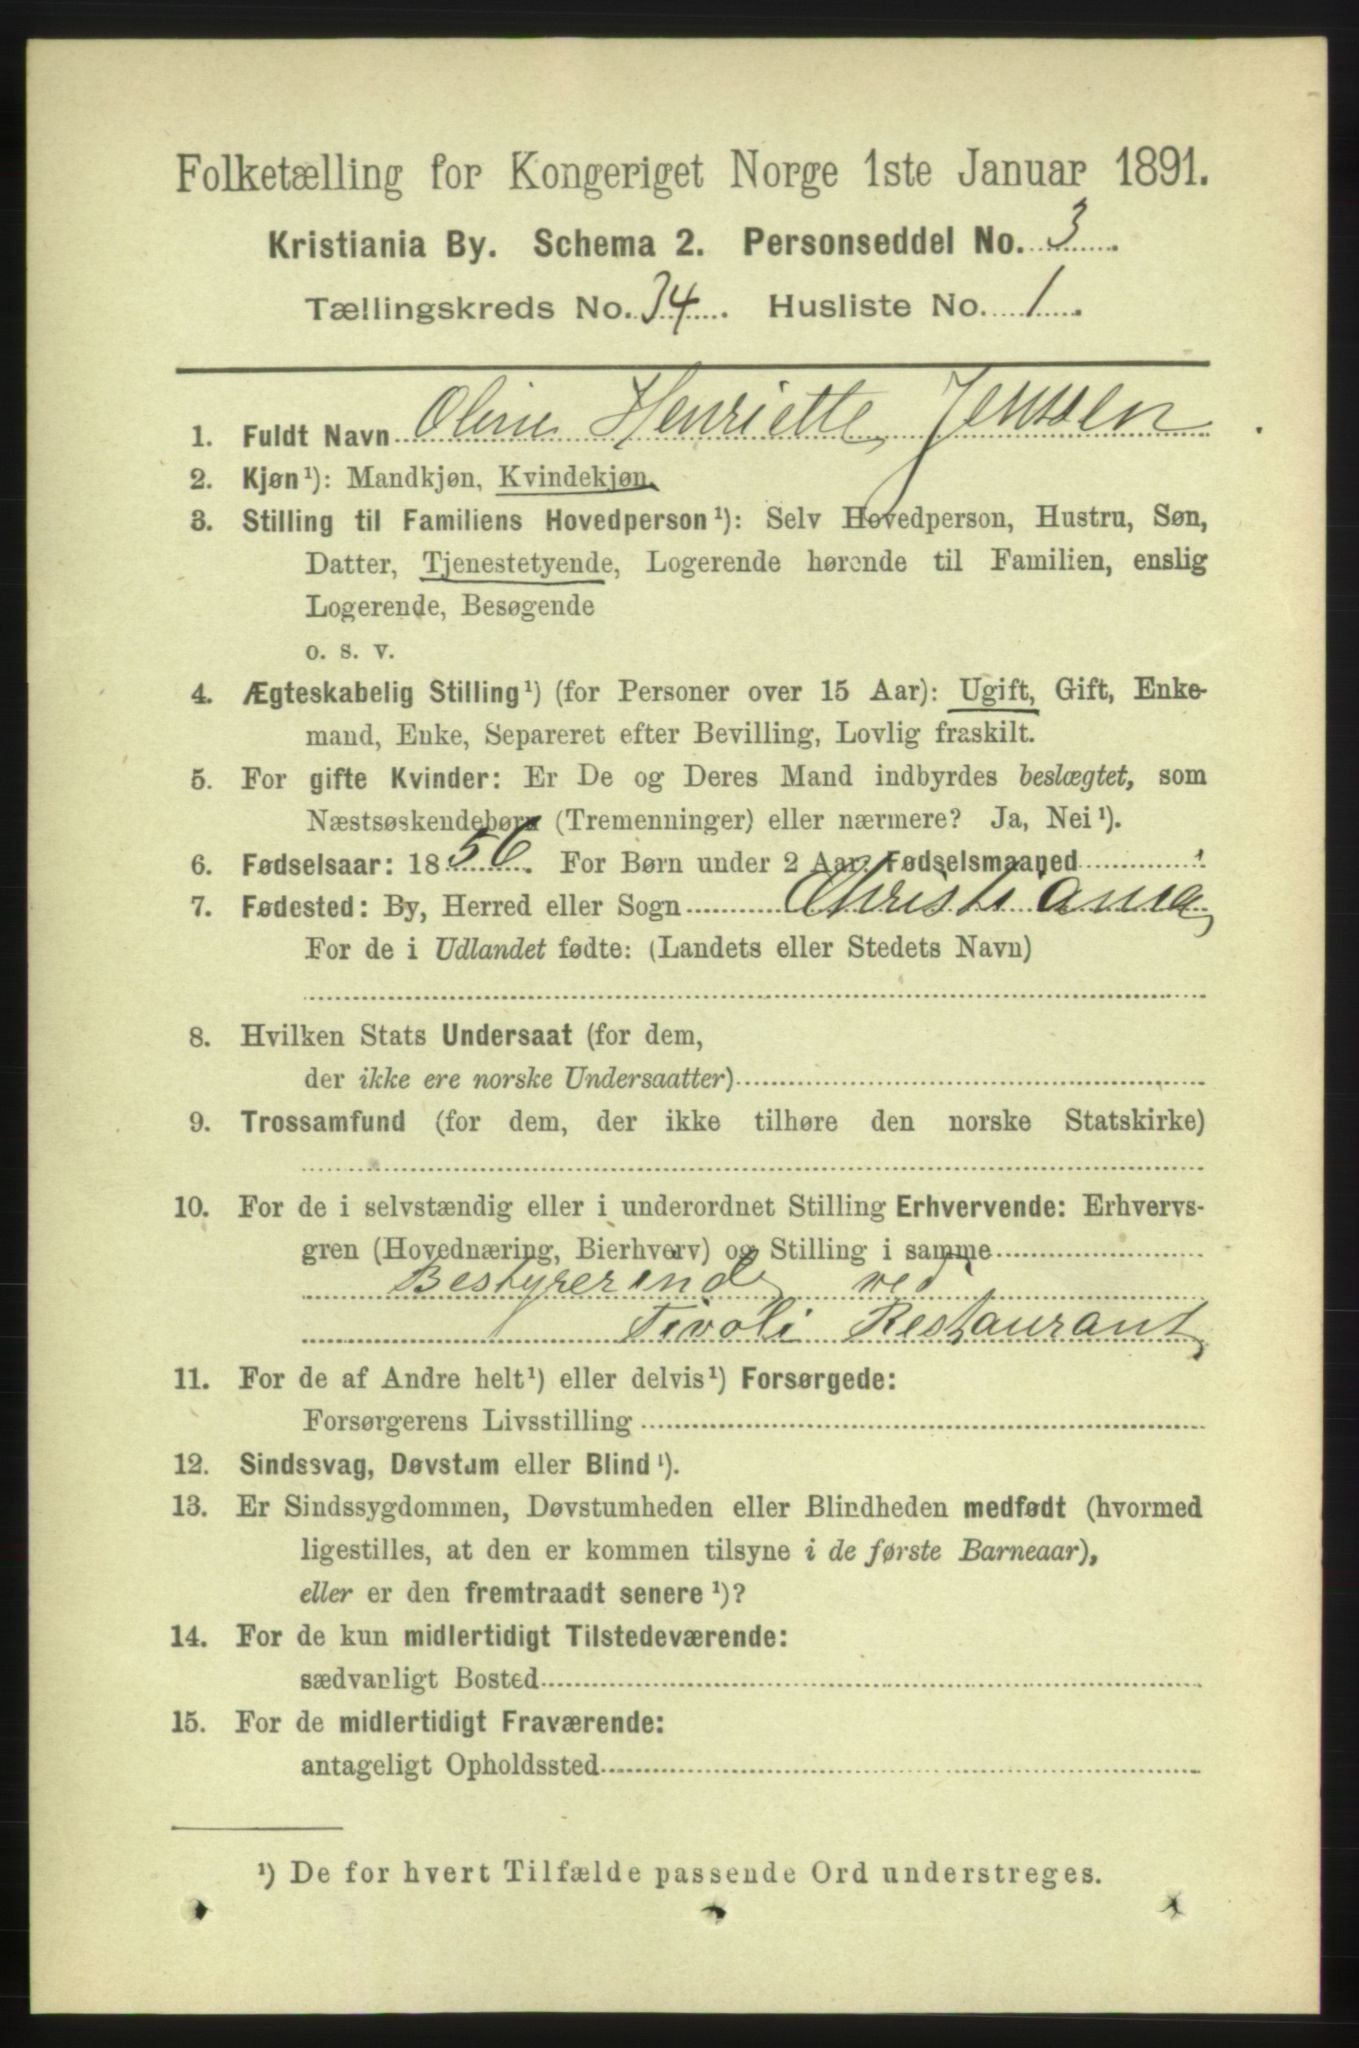 Folketælling for Kongeriget Norge 1ste Januar 1891.
Kristiania By. Schema 2. Personseddel No. 3.
Tællingskreds No. 34. Husliste No. 1.
1. Fuldt Navn Oline Henriette Jenssen
2. Kjøn¹): Mandkjøn, Kvindekjøn.
3. Stilling til Familiens Hovedperson¹): Selv Hovedperson, Hustru, Søn,
Datter, Tjenestetyende, Logerende hørende til Familien, enslig
Logerende, Besøgende
o. s. v.
4. Ægteskabelig Stilling¹) (for Personer over 15 Aar): Ugift, Gift, Enke-
mand, Enke, Separeret efter Bevilling, Lovlig fraskilt.
5. For gifte Kvinder: Er De og Deres Mand indbyrdes beslægtet, som
Næstsøskendebørn (Tremenninger) eller nærmere? Ja, Nei¹).
6. Fødselsaar: 1856. For Børn under 2 Aar, Fødselsmaaned
7. Fødested: By, Herred eller Sogn Christiania
For de i Udlandet fødte: (Landets eller Stedets Navn)
8. Hvilken Stats Undersaat (for dem,
der ikke ere norske Undersaatter)
9. Trossamfund (for dem, der ikke tilhøre den norske Statskirke)
10. For de i selvstændig eller i underordnet Stilling Erhvervende: Erhvervs-
gren (Hovednæring, Bierhverv) og Stilling i samme
Bestyrerinde ved
Tivoli Restaurant
11. For de af Andre helt¹) eller delvis¹) Forsørgede:
Forsørgerens Livsstilling
12. Sindssvag, Døvstum eller Blind¹).
13. Er Sindssygdommen, Døvstumheden eller Blindheden medfødt (hvormed
ligestilles, at den er kommen tilsyne i de første Barneaar),
eller er den fremtraadt senere¹)?
14. For de kun midlertidigt Tilstedeværende:
sædvanligt Bosted
15. For de midlertidigt Fraværende:
antageligt Opholdssted
¹) De for hvert Tilfælde passende Ord understreges.